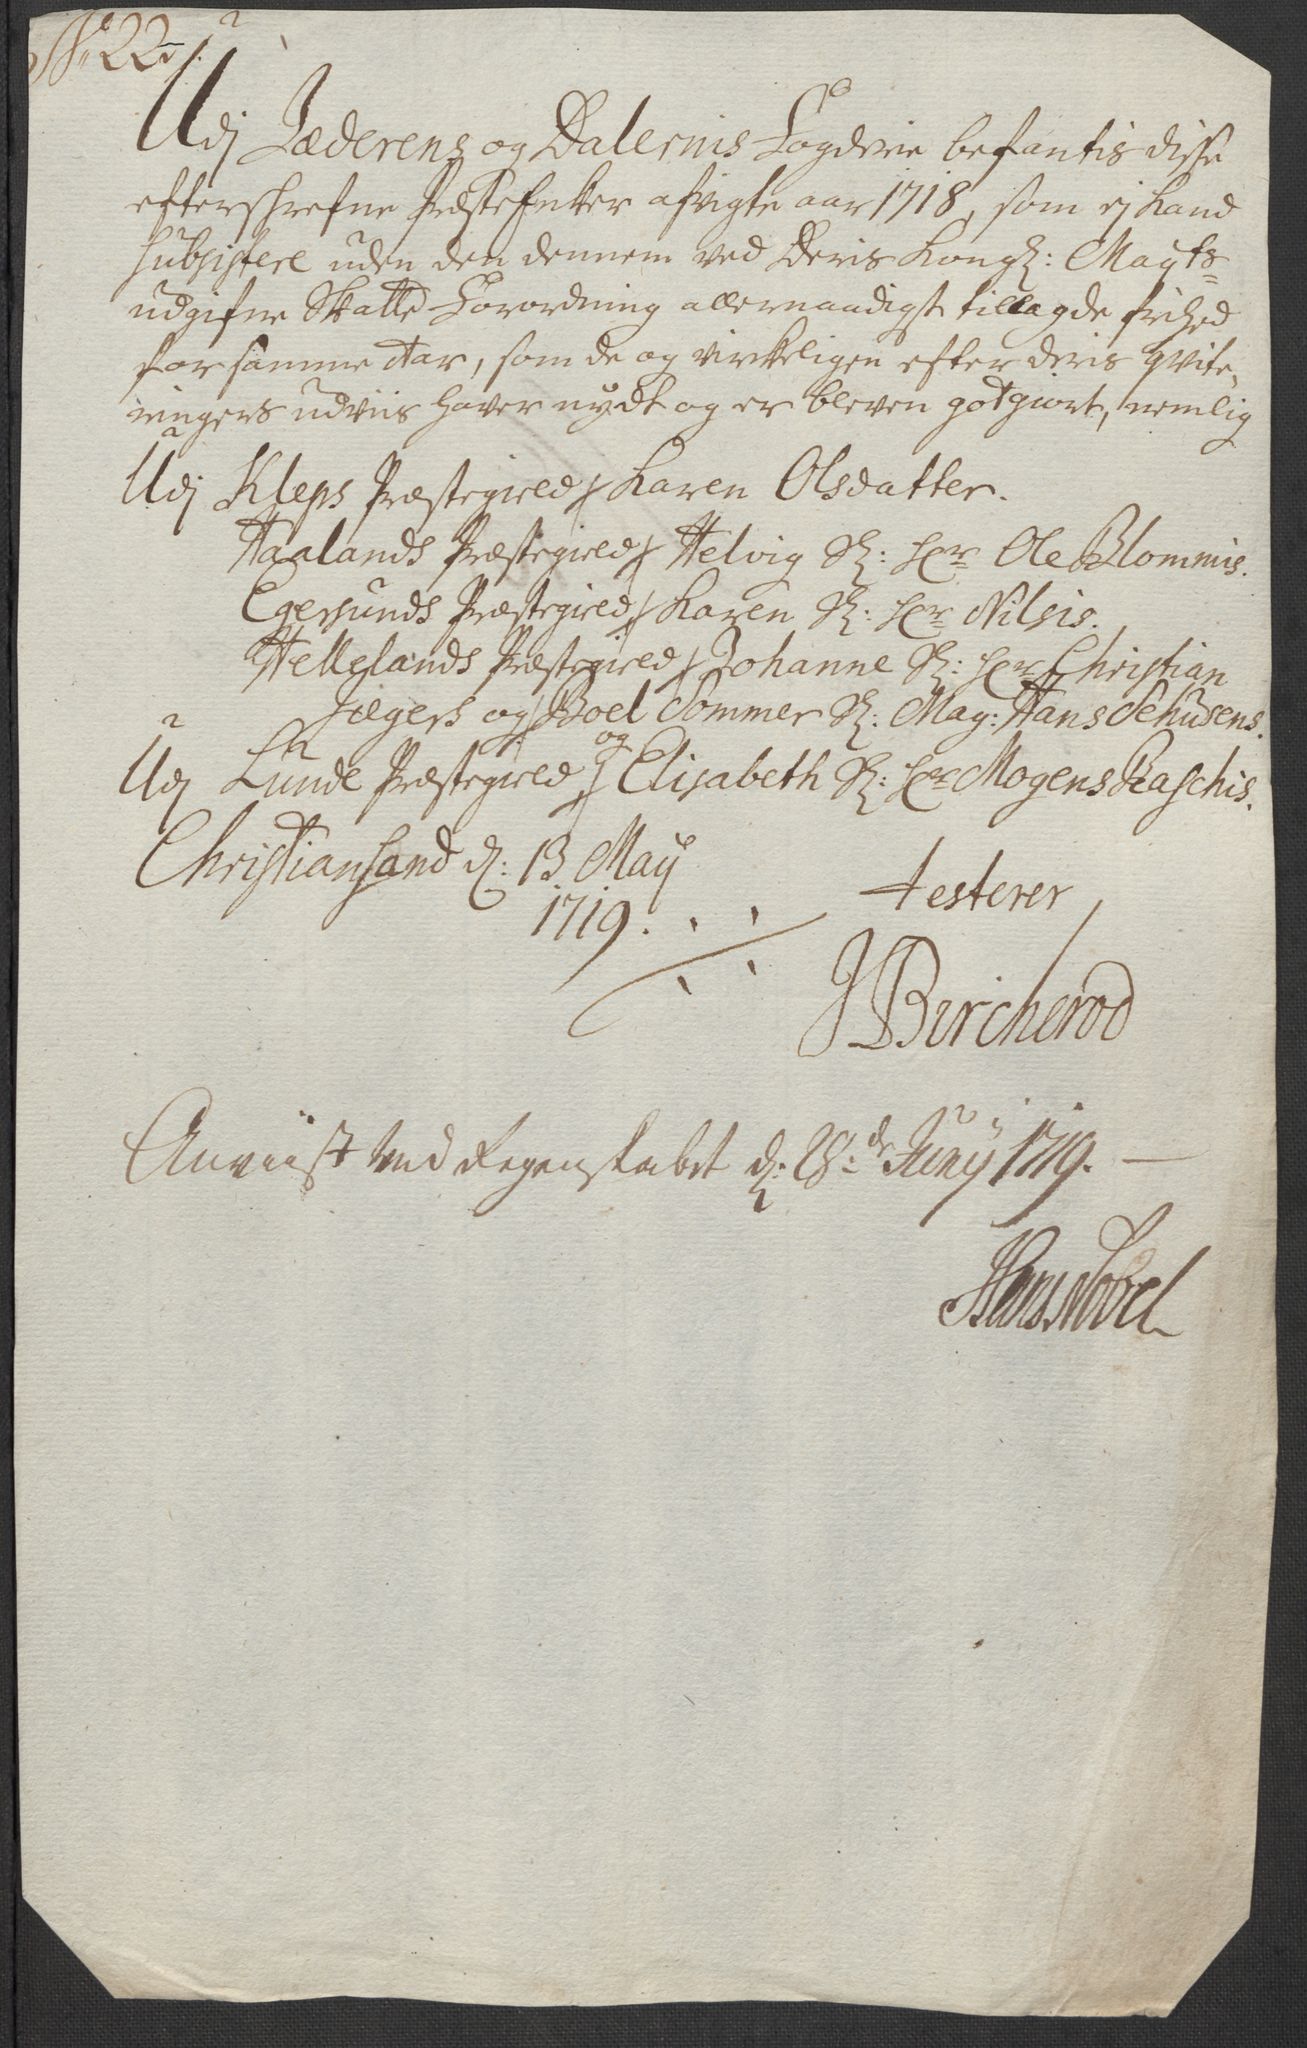 No 22
Udj Jæderens og Dalernis Fogderie befantis disse
efterschrefne Præste Enker afvigte aar 1718, som ej Kand
subsistere uden den dennem ved Deris Kongl: Mayts
udgifne Skatte Forordning allernaadigst tillagde frihed
for samme Aar, som de og virkeligen efter deris qvite,
ringers udviis haver nydt og er bleven gotgiort, nemlig
Udj Kleps Præstegield / Karen Olsdatter.
Haalands Præstegield / Helvig Sl: Hr Ole Blommis.
Egersunds Præstegield / Karen Sl: Hr Nilsis.
Hellelands Præstegield / Johanne Sl: Hr Christian
Jægers og / Boel Sommer Sl: Mag: Hans Schusens.
Udj Lunde Præstegield og / Elisabeth Sl: Hr Mogens Raschis.
Christiansand d: 13 May
1719.
testerer
J Bircherod
Anviist ved Regenskabet d: 28de Junij 1719.
Hans Nobel